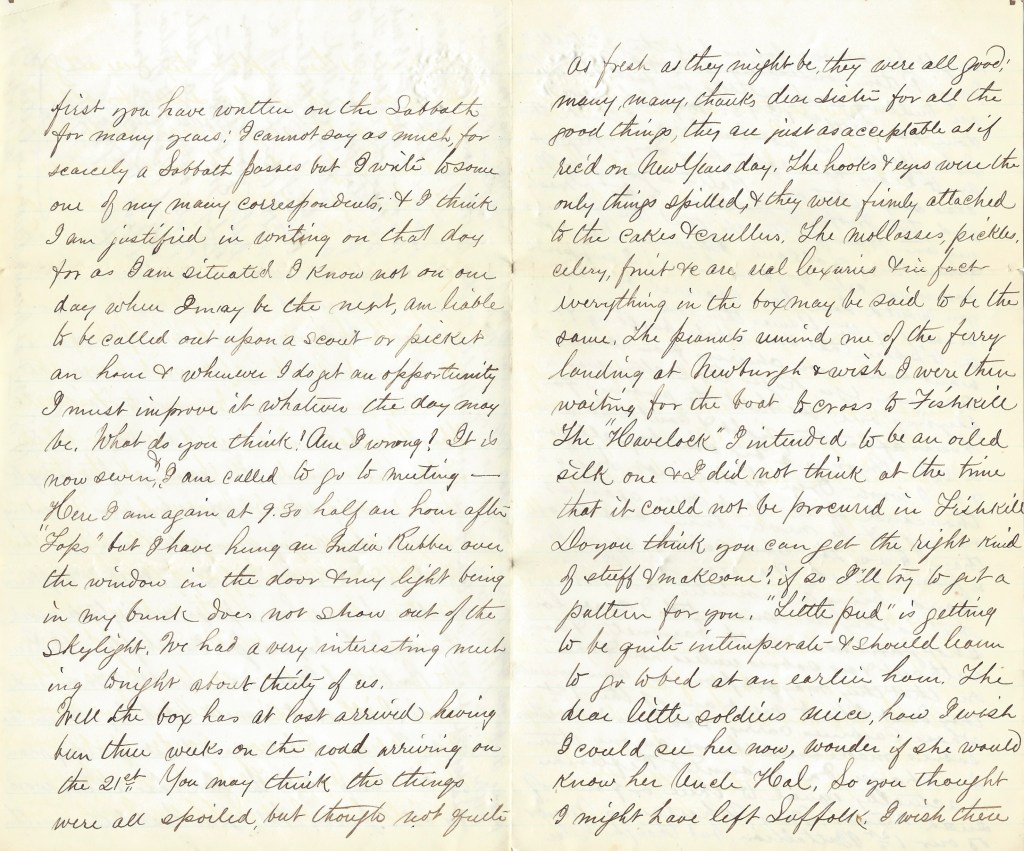 first you have written on the Sabbath
for many years! I cannot say as much, for
scarcely a Sabbath passes but I write to some
one of my many correspondents, & I think
I am justified in writing on that day
for as I am situated I know not on one
day where I may be the next, am liable
to be called out upon a scout or picket
an hour & whenever I do get an opportunity
I must improve it whatever the day may
be. What do you think! Am I wrong? It is
now seven, & I am called to go to meeting —
Here I am again at 9.30 half an hour after
"Taps" but I have hung an India Rubber over
the window in the door & my light being
in my bunk does not show out of the
skylight. We had a very interesting meet
ing tonight about thirty of us.
Well the box has at last arrived having
been three weeks on the road arriving on
the 21st. You may think the things
were all spoiled, but though not quite
As fresh as they might be, they were all good;
many, many, thanks dear sister for all the
good things, they are just as acceptable as if
rec'd on New Years day. The hooks & eyes were the
only things spilled, & they were firmly attached
to the cakes & crullers. The mollasses, pickles,
celery, fruit &c are real luxuries & in fact
everything in the box may be said to be the
same. The peanuts remind me of the ferry
landing at Newburgh & wish I were there
waiting for the boat to cross to Fishkill
The "Havelock" I intended to be an oiled
silk one & I did not think at the time
that it could not be procured in Fishkill
Do you think you can get the right kind
of stuff & make one? if so I'll try to get a
pattern for you. "Little pud" is getting
to be quite intemperate & should learn
to go to bed at an earlier hour. The
dear little soldiers niece, how I wish
I could see her now, wonder if she would
know her Uncle Hal. So you thought
I might have left Suffolk. I wish there